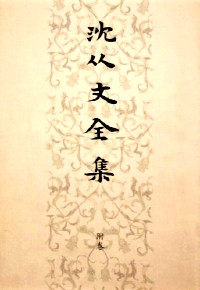 沈从文全集
附卷